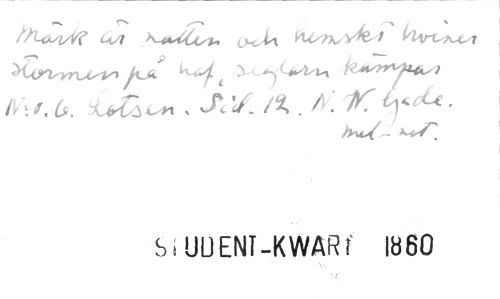 Mörk är natten och hemskt hviner
stormen på haf, seglarn kämpar
N:o. 6. Lotsen. Sid. 12. N. W. Gade.
mel-not.
STUDENT-KWART 1860